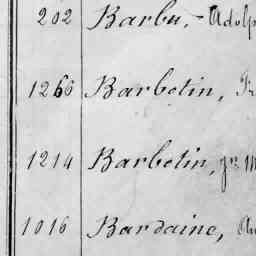 202 Barbu, - Adolp
1266 Barbotin, Fr
1214 Barbotin, jr M
1016 Bardaine, Au